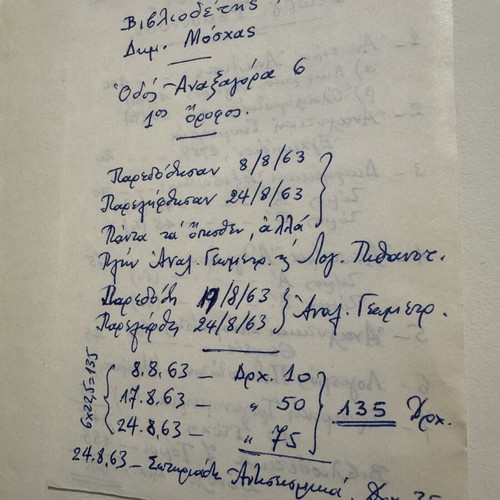 Βιβλιοδέτης
Δημ. Μόσχας
Ὁδός Ἀναξαγόρα 6
1ος ὄροφος.
Παρεδόθησαν 8/8/63
Παρελήφθησαν 24/8/63
Πάντα τά ὄπισθεν, ἀλλά
πλήν Ἀναλ. Γεωμετρ. & Λογ. Πιθανοτ.
Παρεδόθη 17/8/63
Παρελήφθη 24/8/63
Ἀναλ. Γεωμετρ.
6x22,5=135
8.8.63 — Δρχ. 10
17.8.63 — " 50
24.8.63 — " 75
135 Δρχ.
24.8.63 —